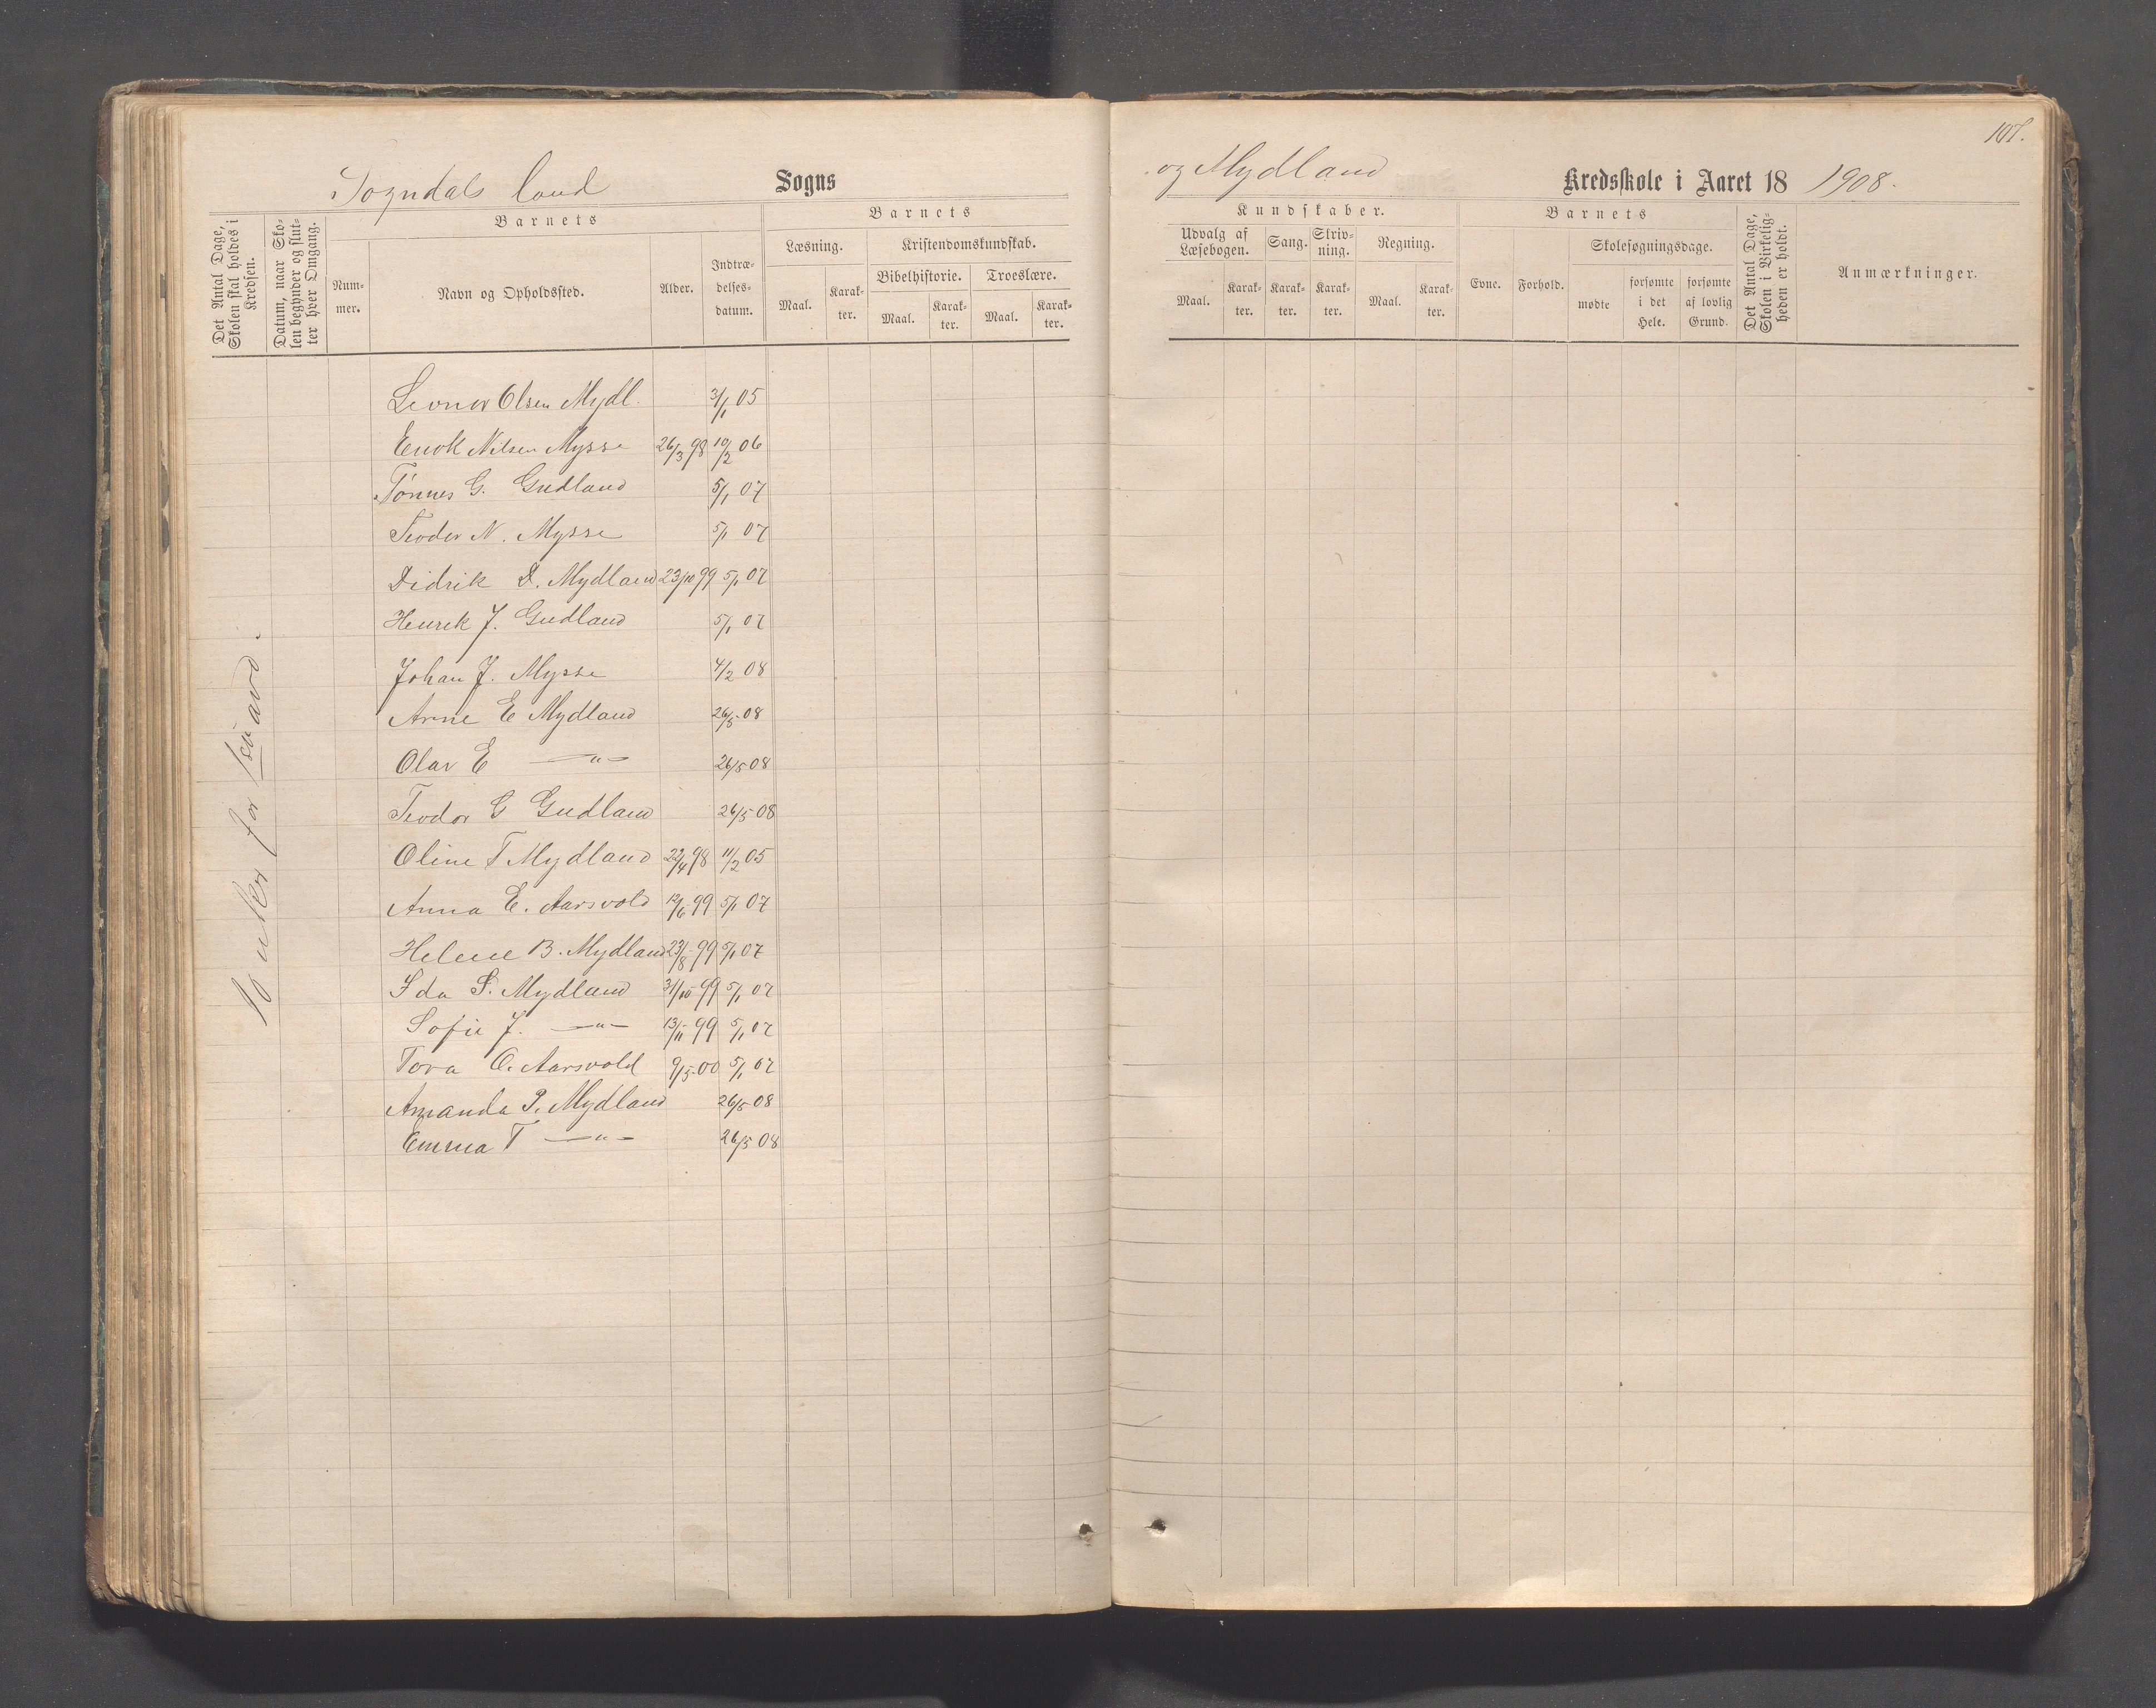 107.
Sogndals land Sogns og Mydland Kredsskole i Aaret 18 1908.
Det Antal Dage, Skolen skal holdes i Kredsen.
Datum, naar Skolen begynder og slutter hver Omgang.
Barnets
Nummer.
Navn og Opholdssted.
Alder.
Indtrædelsesdatum.
Barnets
Læsning.
Maal.
Karakter.
Kristendomskundskab.
Bibelhistorie.
Maal.
Karakter.
Troeslære.
Maal.
Karakter.
Kundskaber.
Udvalg af Læsebogen.
Maal.
Karakter.
Sang.
Karakter.
Skrivning.
Karakter.
Regning.
Maal.
Karakter.
Barnets
Evne.
Forhold.
Skolesøgningsdage.
mødte
forsømte i det Hele.
forsømte af lovlig Grund.
Det Antal Dage, Skolen i Virkeligheden er holdt.
Anmærkninger.
Leonor Olsen Mydl. 3/1 05
Enok Nilsen Mysse 26/3 98 10/2 06
Tønnes G. Gudland 5/1 07
Teodor N. Mysse 5/1 07
Didrik D. Mydland 23/10 99 5/1 07
Henrik J. Gudland 5/1 07
Johan J. Mysse 4/2 08
Arne E Mydland 26/5 08
Olav E —"— 26/5 08
Teodor G Gudland 26/5 08
Oline T Mydland 22/4 98 11/2 05
Anna E. Aarsvold 12/6 99 5/1 07
Helene B. Mydland 23/8 99 5/1 07
Ida S. Mydland 31/10 99 5/1 07
Sofie J. —"— 13/11 99 5/1 07
Tora O. Aarsvold 9/5 00 5/1 07
Amanda P. Mydland 26/5 08
Emma T —"— 26/5 08
uker for